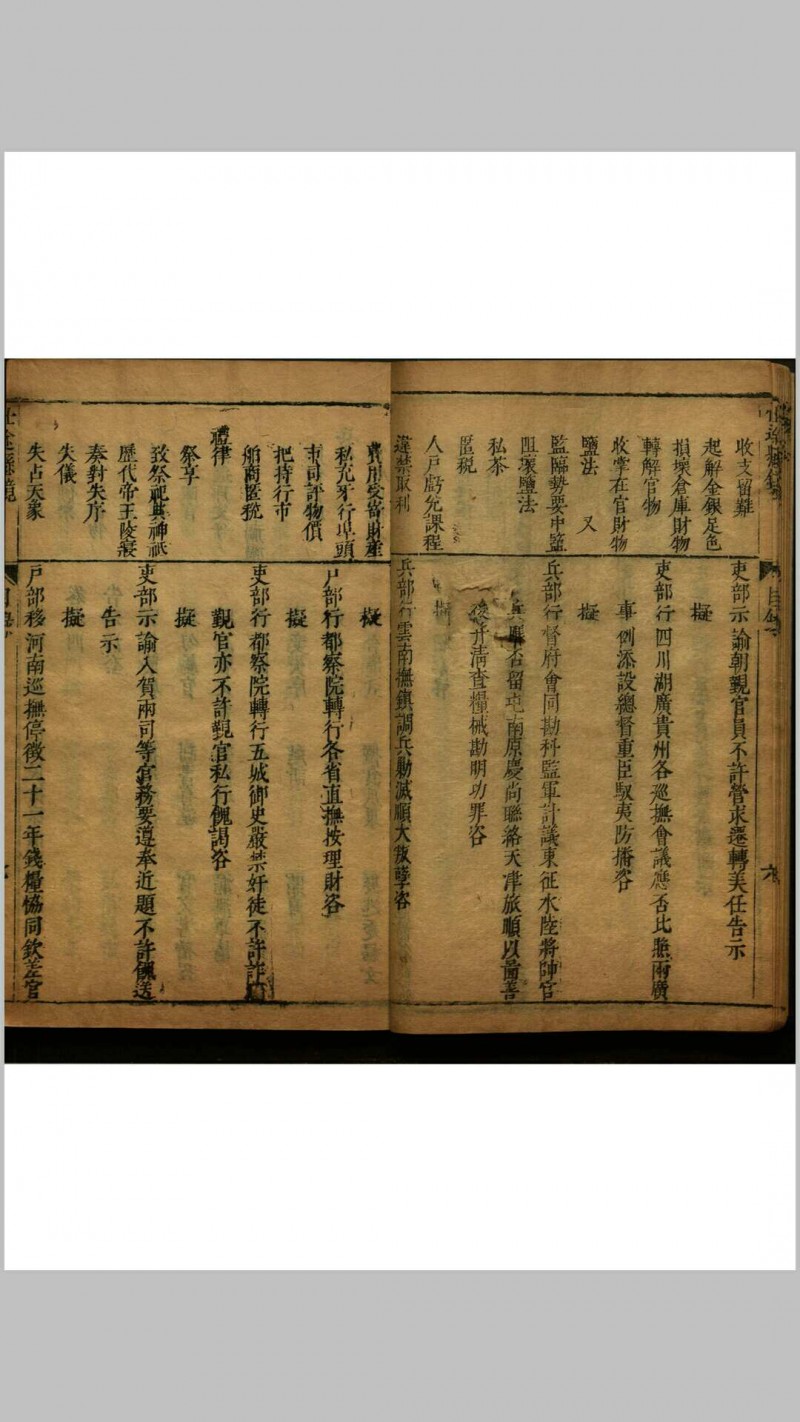 收支留難
起解金銀足色
損壞倉庫財物
轉解官物
收掌在官財物
鹽法　又
監臨勢要中鹽
阻壞鹽法
私茶
匿稅
人戶虧兌課程
違禁取利
吏部示諭朝覲官員不許營求遷轉美任告示
擬
吏部行四川湖廣貴州各巡撫會議應否比照兩廣
事例添設總督重臣馭夷防播咨
擬
兵部行督府會同勘科監軍計議東征水陸將帥官
否留屯南原慶尚聯絡天津旅順以圖善
後并清查糧械勘明功罪咨
擬
兵部行雲南撫鎮調兵勦滅順大叛孽咨
費用受寄財產
私充牙行埠頭
市司評物價
把持行市
舶商匿稅
禮律
祭享
致祭祀典神祇
歷代帝王陵寢
奏對失序
失儀
失占天象
擬
戶部行都察院轉行各省直撫按理財咨
擬
吏部行都察院轉行五城御史嚴禁奸徒不許詐
覲官亦不許覲官私行餽謁咨
擬
吏部示諭入賀兩司等官務要遵奉近題不許餽送
告示
擬
戶部移河南巡撫停徵二十一年錢糧恊同欽差官
目錄
六